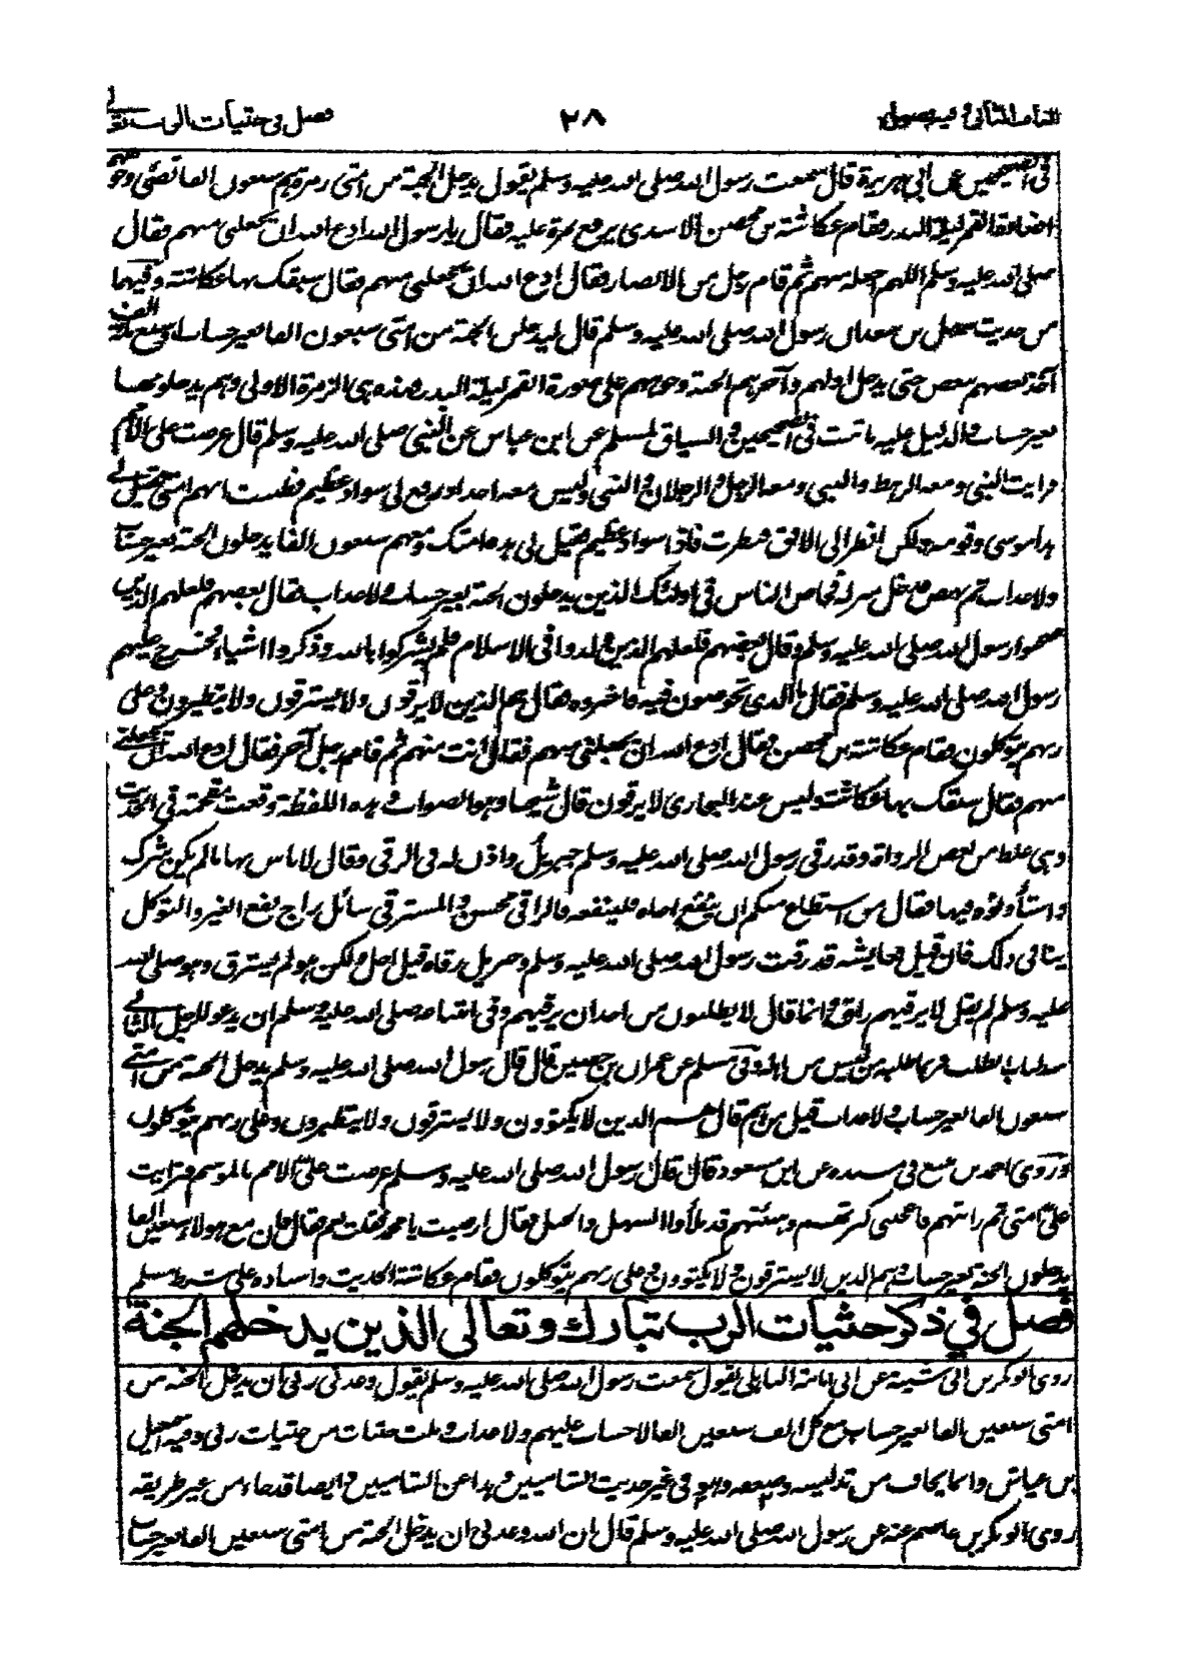 الباب الثاني وفيه فصول ٢٨ فصل في حثيات الرب تعالى
في الصحيحين عن ابي هريرة قال سمعت رسول الله صلى الله عليه وسلم يقول يدخل الجنة من امتي زمرة هم سبعون الفا تضئ وجوههم
اضاءة القمر ليلة البدر فقام عكاشة بن محصن الاسدي يرفع نمرة عليه فقال يا رسول الله ادع الله ان يجعلني منهم فقال
صلى الله عليه وسلم اللهم اجعله منهم ثم قام رجل من الانصار فقال ادع الله ان يجعلني منهم فقال سبقك بها عكاشة وفيهما
من حديث سهل بن سعد ان رسول الله صلى الله عليه وسلم قال ليدخلن الجنة من امتي سبعون الفا بغير حساب او سبع مائة الف
آخذ بعضهم ببعض حتى يدخل اولهم وآخرهم الجنة وجوههم على صورة القمر ليلة البدر فهذه هي الزمرة الاولى وهم يدخلونها
بغير حساب والدليل عليه ما ثبت في الصحيحين والسياق لمسلم عن ابن عباس عن النبي صلى الله عليه وسلم قال عرضت علي الامم
فرايت النبي ومعه الرهط والنبي ومعه الرجل والرجلان والنبي وليس معه احد اذ رفع لي سواد عظيم فظننت انهم امتي فقيل لي
هذا موسى وقومه ولكن انظر الى الافق فنظرت فاذا سواد عظيم فقيل لي هذه امتك ومعهم سبعون الفا يدخلون الجنة بغير حساب
ولا عذاب ثم نهض فدخل منزله فخاض الناس في اولئك الذين يدخلون الجنة بغير حساب ولا عذاب فقال بعضهم فلعلهم الذين
صحبوا رسول الله صلى الله عليه وسلم وقال بعضهم فلعلهم الذين ولدوا في الاسلام فلم يشركوا بالله وذكروا اشياء فخرج عليهم
رسول الله صلى الله عليه وسلم فقال ما الذي تخوضون فيه فاخبروه فقال هم الذين لا يرقون ولا يسترقون ولا يتطيرون وعلى
ربهم يتوكلون فقام عكاشة بن محصن فقال ادع الله ان يجعلني منهم فقال انت منهم ثم قام رجل آخر فقال ادع الله ان يجعلني
منهم فقال سبقك بها عكاشة وليس عند البخاري لا يرقون قال شيخنا وهو الصواب وهذه اللفظة وقعت مقحمة في الحديث
وهي غلط من بعض الرواة وقد رقى رسول الله صلى الله عليه وسلم جبريل واذن له في الرقى وقال لا باس بها ما لم يكن شرك
واستأذنوه فيها فقال من استطاع منكم ان ينفع اخاه فلينفعه فالراقي محسن والمسترقي سائل راج نفع الغير والتوكل
ينافي ذلك فان قيل فعايشة قد رقت رسول الله صلى الله عليه وسلم وجبريل رقاه قيل اجل ولكن هو لم يسترق وهو صلى الله
عليه وسلم لم يقل لا يرقيهم راق وانما قال لا يطلبون من احد ان يرقيهم وفي امتناعه صلى الله عليه وسلم ان يدعو للرجل الثاني
سد لباب الطلب فربما طلبه من ليس من اهله وفي مسلم عن عمران بن حصين قال قال رسول الله صلى الله عليه وسلم يدخل الجنة من امتي
سبعون الفا بغير حساب ولا عذاب قيل من هم قال هم الذين لا يكتوون ولا يسترقون ولا يتطيرون وعلى ربهم يتوكلون
وروى احمد بن منيع في مسنده عن ابن مسعود قال قال رسول الله صلى الله عليه وسلم عرضت علي الامم بالموسم فرايت
علي امتي ثم رايتهم فاعجبني كثرتهم وهيئتهم قد ملأوا السهل والجبل فقال ارضيت يا محمد فقلت نعم فقال فان مع هؤلاء سبعين الفا
يدخلون الجنة بغير حساب وهم الذين لا يسترقون ولا يكتوون وعلى ربهم يتوكلون فقام عكاشة الحديث واسناده على شرط مسلم
فصل في ذكر حثيات الرب تبارك وتعالى الذين يدخلهم الجنة
روى ابو بكر بن ابي شيبة عن ابي امامة الباهلي يقول سمعت رسول الله صلى الله عليه وسلم يقول وعدني ربي ان يدخل الجنة من
امتي سبعين الفا بغير حساب مع كل الف سبعين الفا لا حساب عليهم ولا عذاب وثلث حثيات من حثيات ربي وفيه اسمعيل
بن عياش وانما يخاف من تدليسه وضعفه وهو في غير حديث الشاميين وهذا عن الشاميين وايضا قد جاء من غير طريقه
روى ابو بكر بن عاصم عنه عن رسول الله صلى الله عليه وسلم قال ان الله وعدني ان يدخل الجنة من امتي سبعين الفا بغير حساب